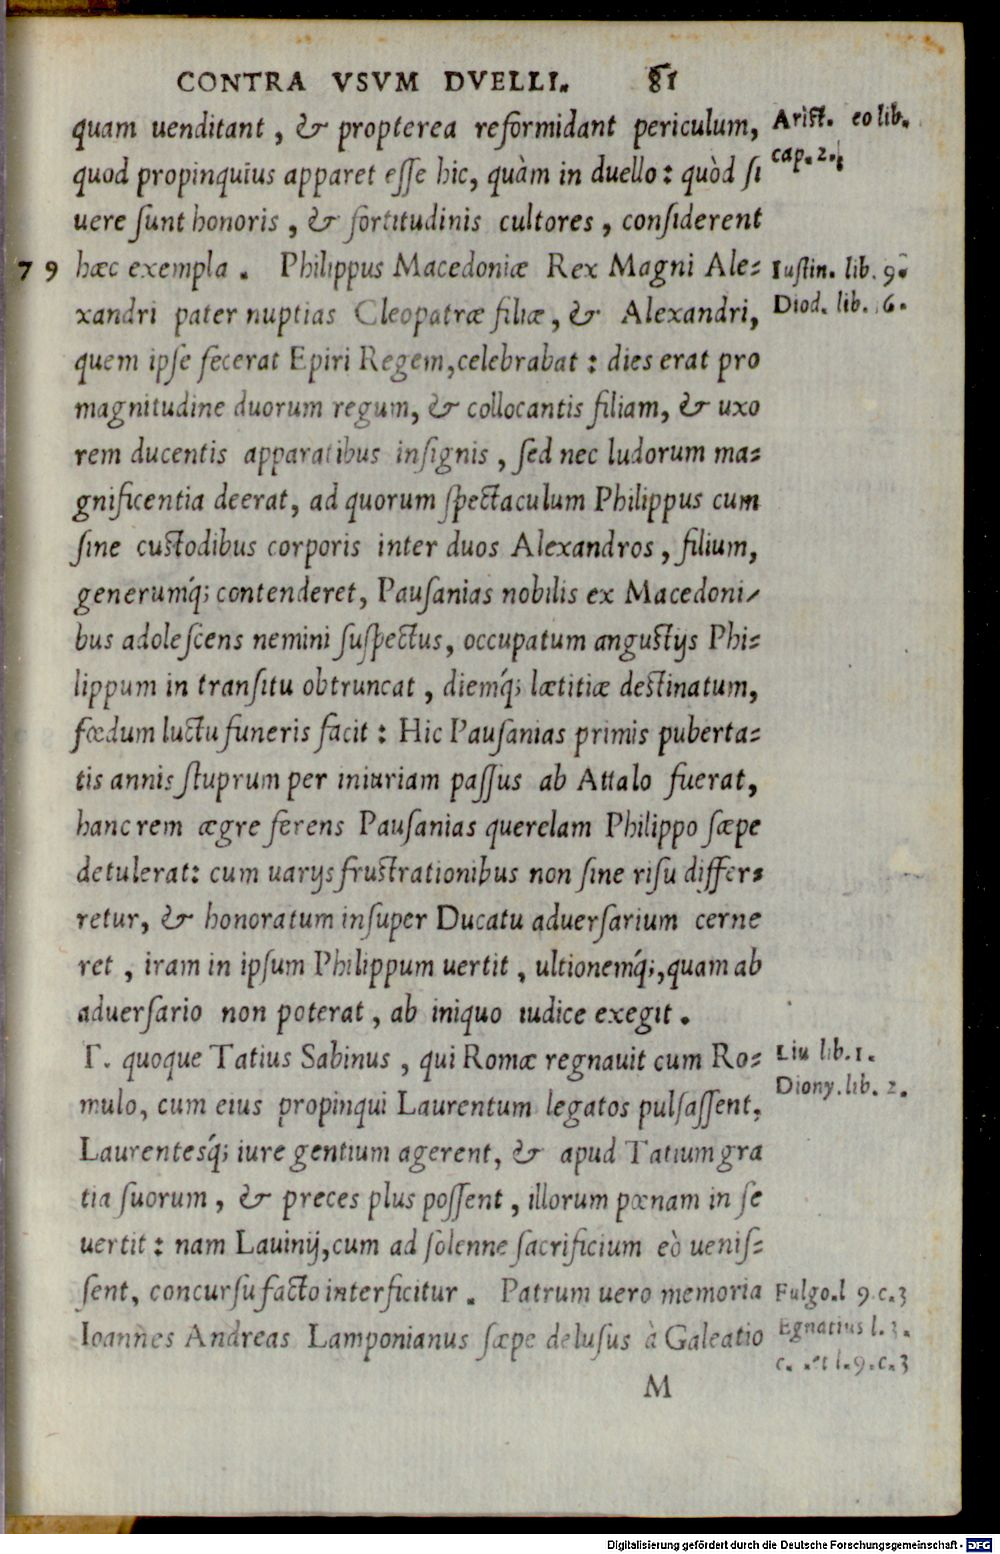 CONTRA VSVM DVELLI. 81
quam uenditant, & propterea reformidant periculum, Arist. eo lib.
quod propinquius apparet esse hic, quàm in duello: quòd si cap. 2.
uere sunt honoris, & fortitudinis cultores, considerent
79 hæc exempla. Philippus Macedoniæ Rex Magni Ale= Iustin. lib. 9.
xandri pater nuptias Cleopatræ filiæ, & Alexandri, Diod. lib. 16.
quem ipse fecerat Epiri Regem, celebrabat: dies erat pro
magnitudine duorum regum, & collocantis filiam, & uxo
rem ducentis apparatibus insignis, sed nec ludorum ma=
gnificentia deerat, ad quorum spectaculum Philippus cum
sine custodibus corporis inter duos Alexandros, filium,
generumq́; contenderet, Pausanias nobilis ex Macedoni/
bus adolescens nemini suspectus, occupatum angustijs Phi=
lippum in transitu obtruncat, diemq́; lætitiæ destinatum,
fœdum luctu funeris facit: Hic Pausanias primis puberta=
tis annis stuprum per iniuriam passus ab Attalo fuerat,
hanc rem ægre ferens Pausanias querelam Philippo sæpe
detulerat: cum uarijs frustrationibus non sine risu differ=
retur, & honoratum insuper Ducatu aduersarium cerne
ret, iram in ipsum Philippum uertit, ultionemq́;, quam ab
aduersario non poterat, ab iniquo iudice exegit.
T. quoque Tatius Sabinus, qui Romæ regnauit cum Ro= Liu lib. 1.
mulo, cum eius propinqui Laurentum legatos pulsassent, Diony. lib. 2.
Laurentesq́; iure gentium agerent, & apud Tatium gra
tia suorum, & preces plus possent, illorum pœnam in se
uertit: nam Lauinij, cum ad solenne sacrificium eò uenis=
sent, concursu facto interficitur. Patrum uero memoria Fulgo. l 9. c. 3
Ioannes Andreas Lamponianus sæpe delusus à Galeatio Egnatius l. 3.
c. et l. 9. c. 3
M
Digitalisierung gefördert durch die Deutsche Forschungsgemeinschaft - DFG